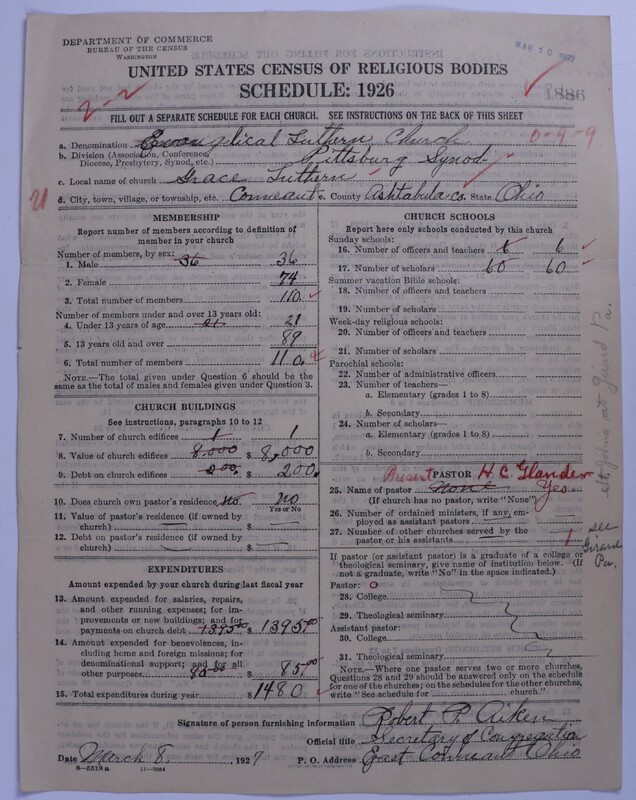 DEPARTMENT OF COMMERCE
BUREAU OF THE CENSUS
WASHINGTON
MAR 10 1927
UNITED STATES CENSUS OF RELIGIOUS BODIES
SCHEDULE: 1926
1886
2-2
FILL OUT A SEPARATE SCHEDULE FOR EACH CHURCH. SEE INSTRUCTIONS ON THE BACK OF THIS SHEET
a. Denomination Evangelical Luthern Church 0-9-9
b. Division (Association, Conference, Diocese, Presbytery, Synod, etc.) Pittsburg Synod
c. Local name of church Grace Luthern
d. City, town, village, or township, etc. Conneaut e. County Ashtabula co. State Ohio
MEMBERSHIP
Report number of members according to definition of member in your church
Number of members, by sex:
1. Male 36 36
2. Female 74
3. Total number of members 110
Number of members under and over 13 years old:
4. Under 13 years of age 21 21
5. 13 years old and over 89
6. Total number of members 110
NOTE.—The total given under Question 6 should be the same as the total of males and females given under Question 3.
CHURCH BUILDINGS
See instructions, paragraphs 10 to 12
7. Number of church edifices 1 1
8. Value of church edifices 8,000 $ 8,000
9. Debt on church edifices 200 $ 200
10. Does church own pastor's residence no no
Yes or No
11. Value of pastor's residence (if owned by church) $
12. Debt on pastor's residence (if owned by church) $
EXPENDITURES
Amount expended by your church during last fiscal year
13. Amount expended for salaries, repairs, and other running expenses; for improvements or new buildings; and for payments on church debt 1395.00 $ 1395.00
14. Amount expended for benevolences, including home and foreign missions; for denominational support; and for all other purposes 85.00 $ 85.00
15. Total expenditures during year $ 1480
CHURCH SCHOOLS
Report here only schools conducted by this church
Sunday schools:
16. Number of officers and teachers 6 6
17. Number of scholars 60 60
Summer vacation Bible schools:
18. Number of officers and teachers
19. Number of scholars
Week-day religious schools:
20. Number of officers and teachers
21. Number of scholars
Parochial schools:
22. Number of administrative officers
23. Number of teachers—
a. Elementary (grades 1 to 8)
b. Secondary
24. Number of scholars—
a. Elementary (grades 1 to 8)
b. Secondary
Present PASTOR H. C. Glander
25. Name of pastor None Yes
(If church has no pastor, write "None")
26. Number of ordained ministers, if any, employed as assistant pastors
27. Number of other churches served by the pastor or his assistants 1
see Girard Pa.
St. Johns at Girard Pa.
If pastor (or assistant pastor) is a graduate of a college or theological seminary, give name of institution below. (If not a graduate, write "No" in the space indicated.)
Pastor: O
28. College
29. Theological seminary
Assistant pastor:
30. College
31. Theological seminary
NOTE.—Where one pastor serves two or more churches, Questions 28 and 29 should be answered only on the schedule for one of the churches; on the schedules for the other churches, write "See schedule for church."
Signature of person furnishing information Robert P. Aiken
Official title Secretary of Congregation
Date March 8, 1927 P. O. Address East Conneaut Ohio
8-5519a 11-7084